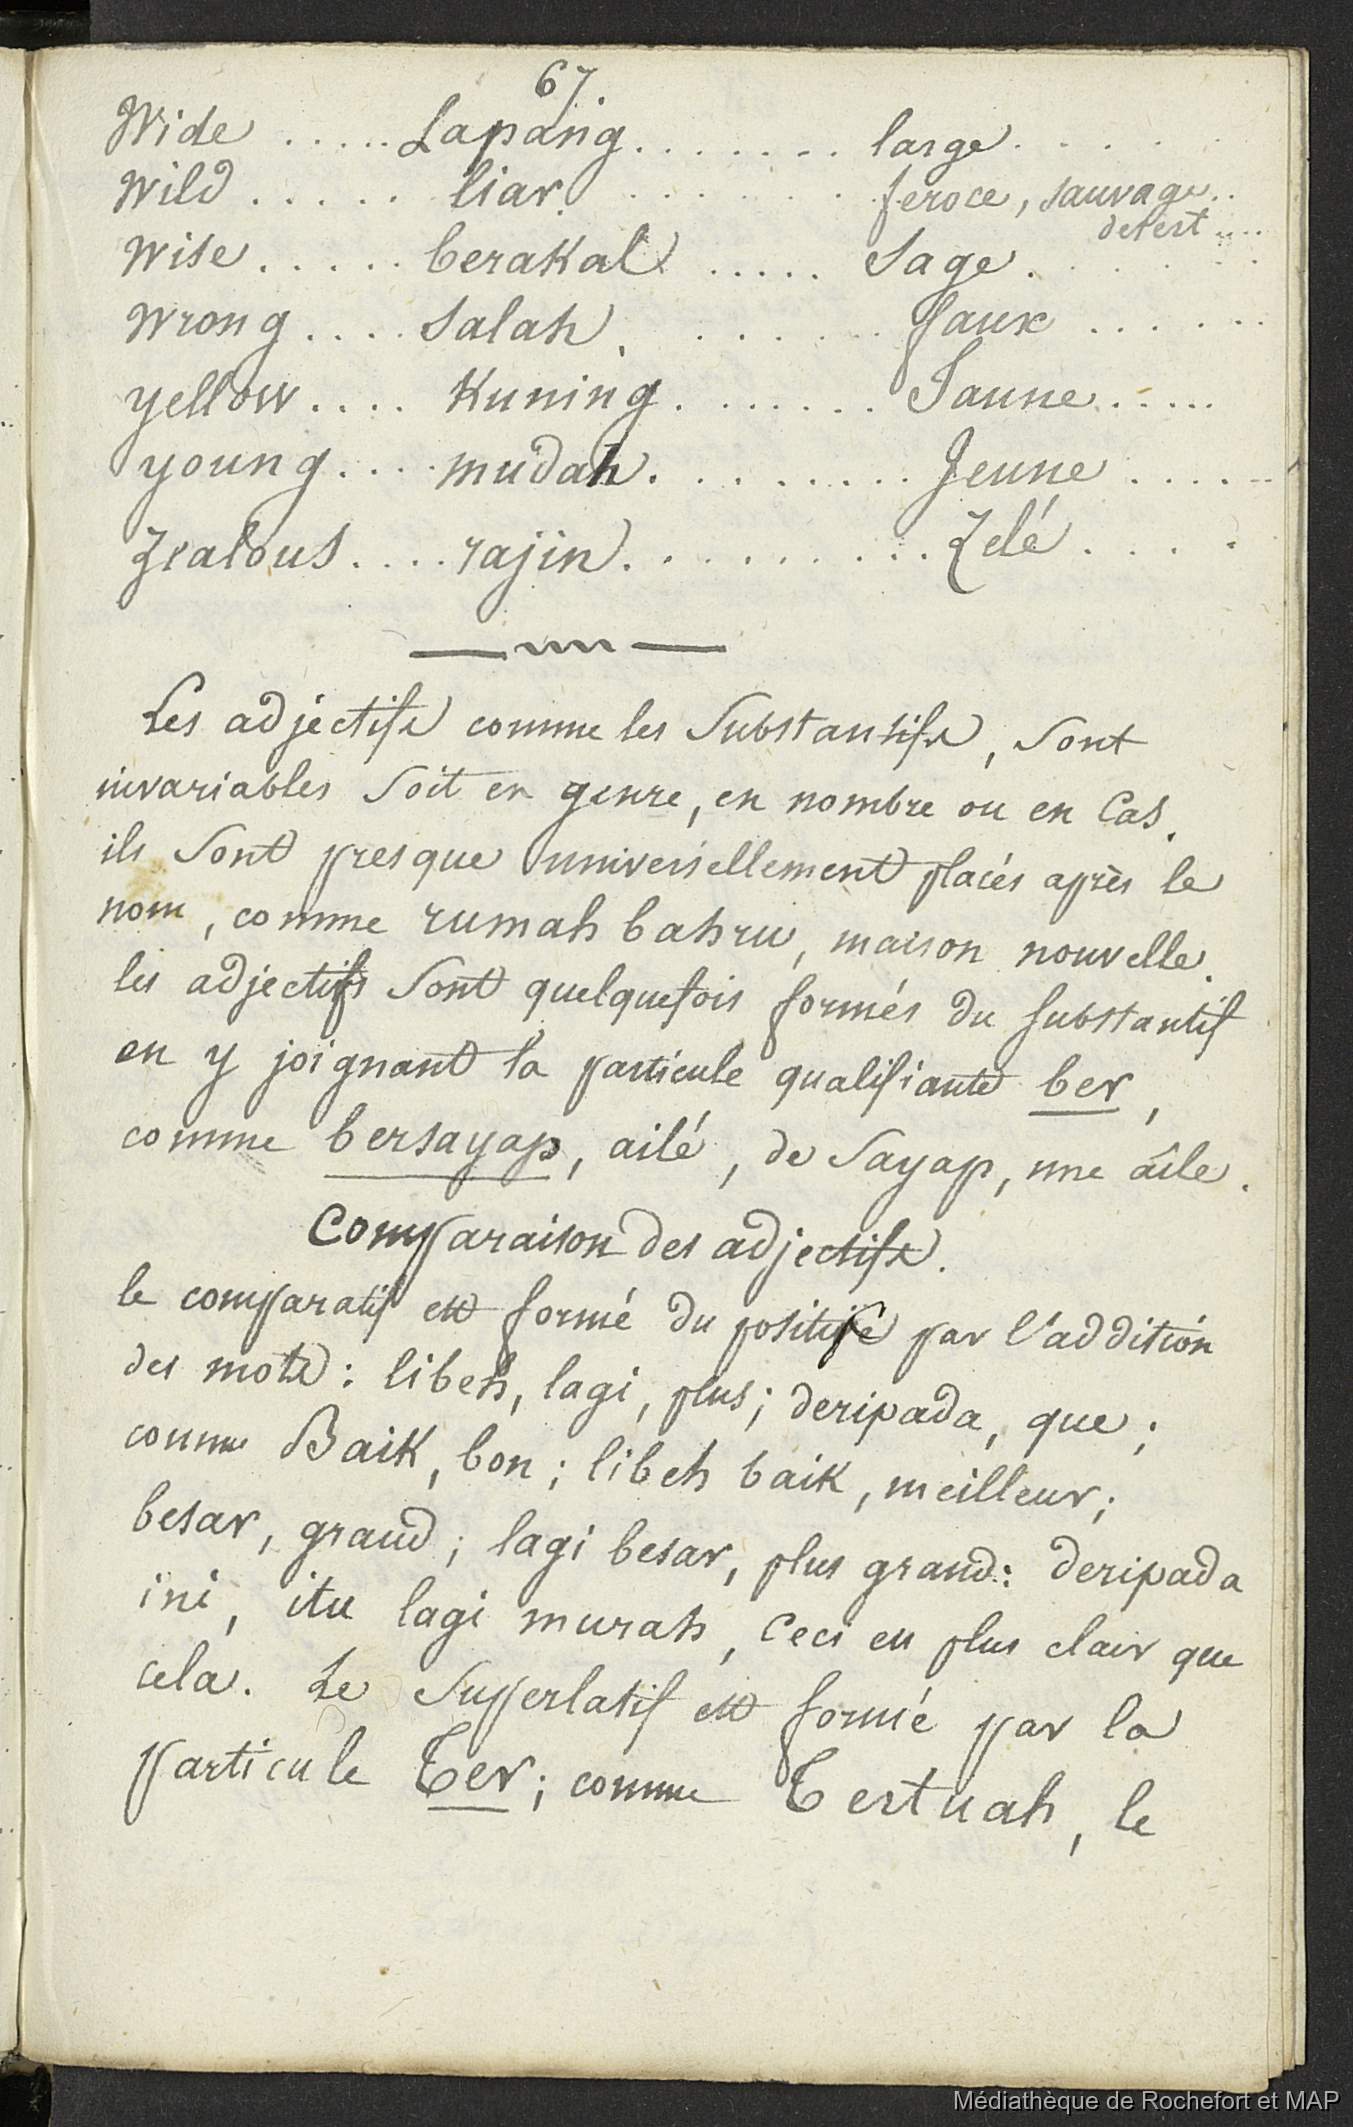 67.
Wide ..... Lapang ....... large ....
Wild ..... liar ....... feroce, sauvage ..
desert ....
Wise ..... berakal ..... Sage .....
Wrong .... Salah ....... faux ......
yellow .... Kuning ....... Jaune .....
young .... mudah ........ Jeune .....
Zealous .... rajin ......... Zelé ....
Les adjectifs comme les Substantifs, Sont
invariables Soit en genre, en nombre ou en Cas.
ils Sont presque universellement placés après le
nom, comme rumah bahru, maison nouvelle.
les adjectifs Sont quelquefois formés du substantif
en y joignant la particule qualifiante ber,
comme bersayap, ailé, de Sayap, une aîle.
Comparaison des adjectifs.
le comparatif est formé du positif par l'addition
des mots: libeh, lagi, plus; deripada, que;
comme Baik, bon; libeh baik, meilleur;
besar, grand; lagi besar, plus grand: deripada
ini, itu lagi murah, Ceci est plus clair que
cela. Le Superlatif est formé par la
particule Ter; comme Tertuah, le
Médiathèque de Rochefort et MAP